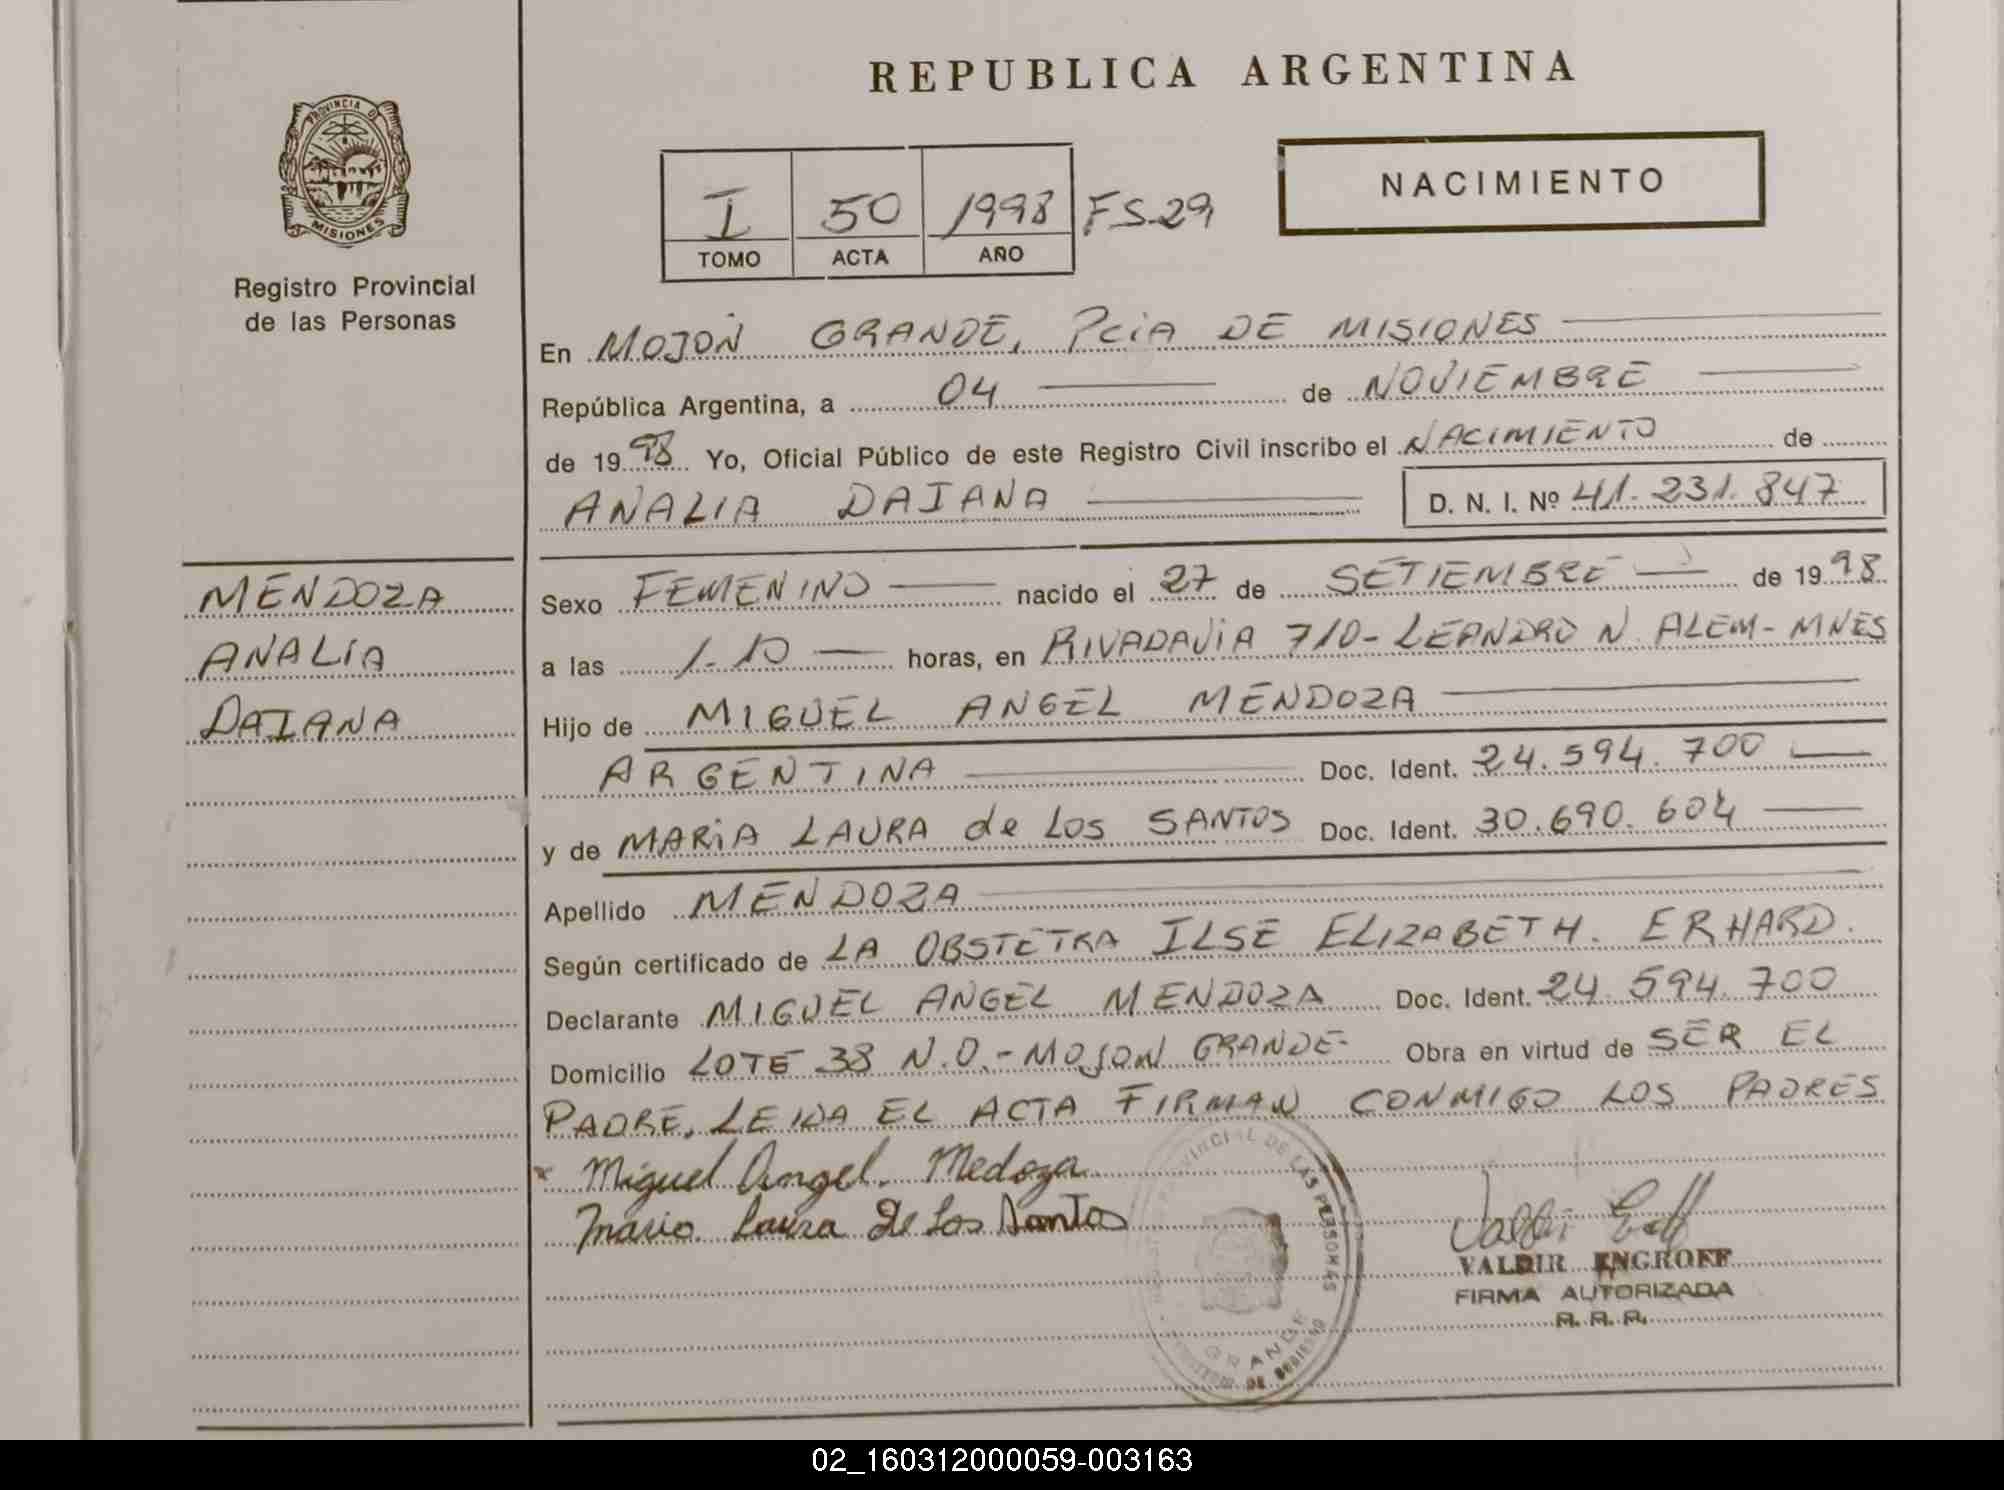 REPUBLICA ARGENTINA
PROVINCIA D
MISIONES
Registro Provincial
de las Personas
I 50 1998 FS.29
TOMO ACTA AÑO
NACIMIENTO
En MOJON GRANDE, PCiA DE MISIONES
República Argentina, a 04 de NOVIEMBRE
de 1998 Yo, Oficial Público de este Registro Civil inscribo el NACIMIENTO de
ANALIA DAIANA D. N. I. Nº 41.231.847
MENDOZA
ANALIA
DAIANA
Sexo FEMENINO nacido el 27 de SETIEMBRE de 1998
a las 1.10 horas, en RIVADAVIA 710- LEANDRO N. ALEM- MNES
Hijo de MIGUEL ANGEL MENDOZA
ARGENTINA Doc. Ident. 24.594.700
y de MARiA LAURA de Los SANTOS Doc. Ident. 30.690.604
Apellido MENDOZA
Según certificado de LA OBSTETRA ILSE ELIZABETH. ERHARD.
Declarante MIGUEL ANGEL MENDOZA Doc. Ident. 24.594.700
Domicilio LOTE 38 N.O.- MOJON GRANDE- Obra en virtud de SER EL
PADRE. LEIDA EL ACTA FIRMAN CONMIGO LOS PADRES
x Miguel Angel. Medoza
Maria Laura De Los Santos
DE LAS PERSONAS
GRANDE
VALDIR ENGROFF
FIRMA AUTORIZADA
02_160312000059-003163